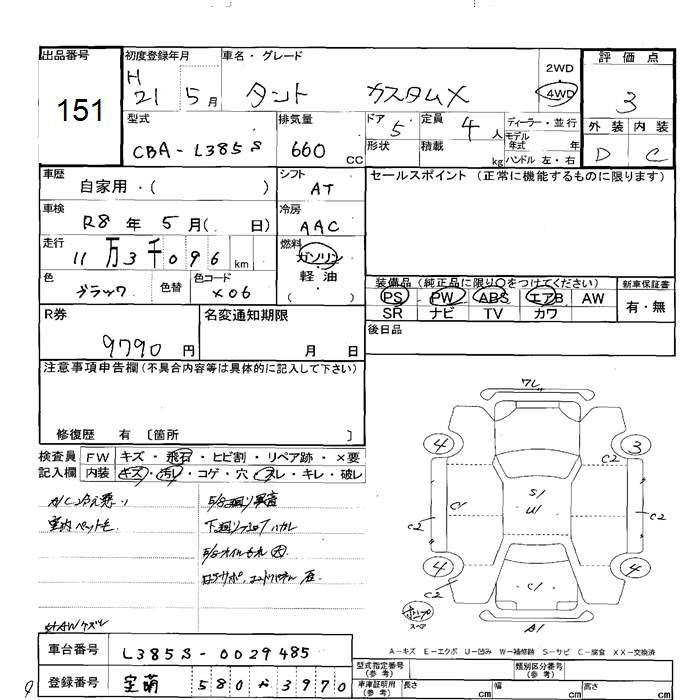 出品番号
151
初度登録年月
H
21 5月
車名・グレード
タント カスタムX
2WD
4WD
評価点
3
外装 内装
D C
型式
CBA-L385S
排気量
660 cc
ドア 5
形状
定員 4人
積載 kg
ディーラー・並行
モデル年式 年
ハンドル 左・右
車歴
自家用・( )
シフト
AT
セールスポイント (正常に機能するものに限ります)
車検
R8年 5月( 日)
冷房
AAC
走行
11万3千096 km
燃料
ガソリン
軽・油
( )
色
ブラック
色替
色コード
X06
装備品 (純正品に限り○をつけてください)
PS PW ABS エアB AW
SR ナビ TV カワ
新車保証書
有・無
R券
9790 円
名変通知期限
月 日
後日品
注意事項申告欄 (不具合内容等は具体的に記入して下さい)
修復歴 有 〔箇所 〕
検査員
記入欄
FW キズ・飛石・ヒビ割・リペア跡・×要
内装 キズ・汚レ・コゲ・穴・スレ・キレ・破レ
A/C冷え悪い
室内ペット毛
ワレ
4 3
C1 S1 U1 C2 C2 C2
4 4
C2 C1 C2
A1
スペア
A-キズ E-エクボ U-凹み W-補修跡 S-サビ C-腐食 XX-交換済
車台番号
L385S-0029485
登録番号
室蘭 580 3970
型式指定番号
(参考)
類別区分番号
(参考)
車庫証明用
(参考)
長さ cm
幅 cm
高さ cm